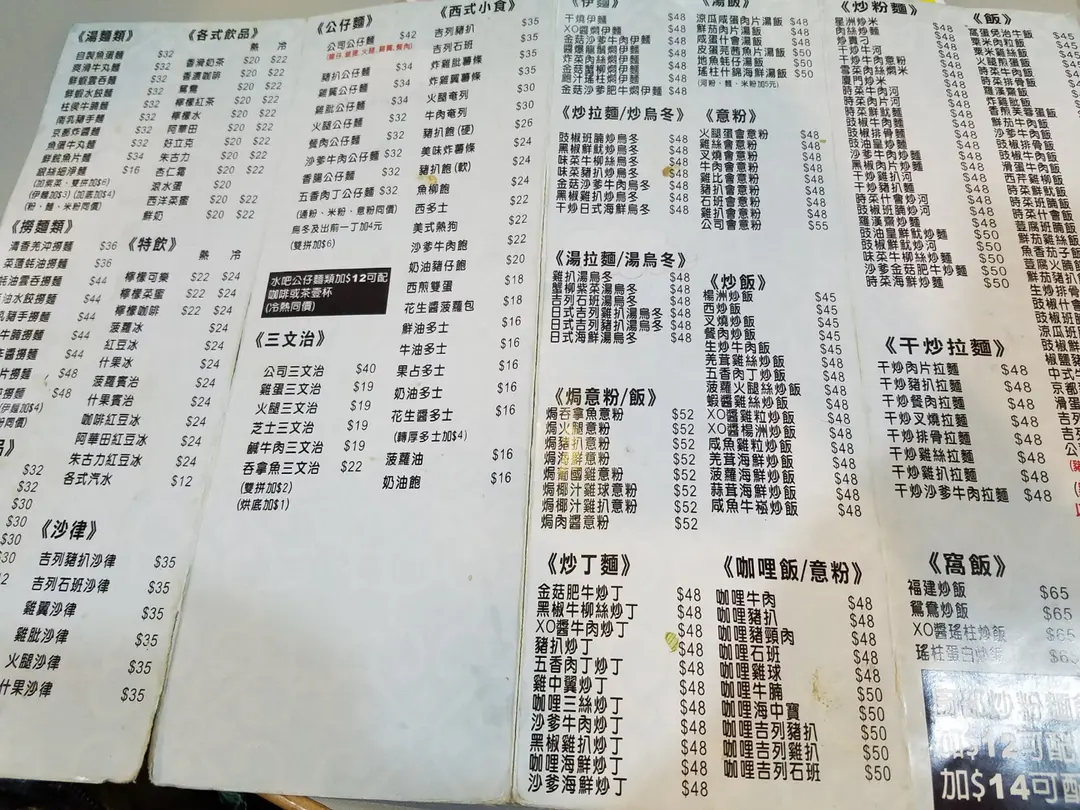 《湯麵類》
自製魚蛋麵 $32
爽滑牛丸麵 $32
鮮蝦雲吞麵 $32
鮮蝦水餃麵 $32
柱侯牛腩麵 $32
南乳豬手麵 $32
京都炸醬麵 $32
魚蛋牛丸麵 $32
鮮鯪魚片麵 $34
銀絲細淨麵 $16
(加紫菜、雙拼加$6)
(伊麵加$3) (加底加$4)
(粉、麵、米粉同價)
《撈麵類》
清香羌沖撈麵 $36
菜薳蚝油撈麵 $36
蚝油雲吞撈麵 $44
油水餃撈麵 $44
乳豬手撈麵 $44
牛腩撈麵 $44
醬撈麵 $44
片撈麵 $48
撈麵 $48
(伊麵加$4)
粉同價)
$32
$32
$30
$30
$30
$30
《沙律》
吉列豬扒沙律 $35
吉列石班沙律 $35
雞翼沙律 $35
雞肶沙律 $35
火腿沙律 $35
什果沙律 $35
《各式飲品》
熱 冷
香滑奶茶 $20 $22
香濃咖啡 $20 $22
鴛鴦 $20 $22
檸檬紅茶 $20 $22
檸檬水 $20 $22
阿華田 $20 $22
好立克 $20 $22
朱古力 $20 $22
杏仁霜 $20 $22
滾水蛋 $20
西洋菜蜜 $20 $22
鮮奶 $20 $22
《特飲》
熱 冷
檸檬可樂 $22 $24
檸檬菜蜜 $22 $24
檸檬咖啡 $22 $24
菠蘿冰 $24
紅豆冰 $24
什果冰 $24
菠蘿賓治 $24
什果賓治 $24
咖啡紅豆冰 $24
阿華田紅豆冰 $24
朱古力紅豆冰 $24
各式汽水 $12
《公仔麵》
公司公仔麵 $42
(腸仔,餐蛋,火腿,雞翼,餐肉)
豬扒公仔麵 $34
雞翼公仔麵 $34
雞肶公仔麵 $34
火腿公仔麵 $32
餐肉公仔麵 $32
沙爹牛肉公仔麵 $32
香腸公仔麵 $32
五香肉丁公仔麵 $32
(通粉、米粉、意粉同價)
烏冬及出前一丁加4元
(雙拼加$6)
水吧公仔麵類加$12可配
咖啡或茶壹杯
(冷熱同價)
《三文治》
公司三文治 $40
雞蛋三文治 $19
火腿三文治 $19
芝士三文治 $19
鹹牛肉三文治 $19
吞拿魚三文治 $22
(雙拼加$2)
(烘底加$1)
《西式小食》
吉列豬扒 $35
吉列石班 $35
炸雞肶薯條 $35
炸雞翼薯條 $35
火腿奄列 $30
牛肉奄列 $30
豬扒飽(硬) $26
美味炸薯條 $24
豬扒飽(軟) $24
魚柳飽 $24
西多士 $22
美式熱狗 $22
沙爹牛肉飽 $22
奶油豬仔飽 $20
西煎雙蛋 $18
花生醬菠蘿包 $18
鮮油多士 $16
牛油多士 $16
果占多士 $16
奶油多士 $16
花生醬多士 $16
(轉厚多士加$4)
菠蘿油 $16
奶油飽 $16
《伊麵》
干燒伊麵 $48
XO醬燜伊麵 $48
金菇沙爹牛肉伊麵 $48
醬爆腸醋燜伊麵 $48
金菇炸菜燜伊麵 $48
金菇蟹柳燜伊麵 $48
雞汁柱燜伊麵 $48
金菇沙爹肥牛燜伊麵 $48
《炒拉麵/炒烏冬》
豉椒班腩炒烏冬 $48
黑椒鮮魷炒烏冬 $48
味菜牛柳絲炒烏冬 $48
味菜豬扒炒烏冬 $48
金菇沙爹牛肉烏冬 $48
黑椒雞扒炒烏冬 $48
干炒日式海鮮烏冬 $48
《湯拉麵/湯烏冬》
雞扒湯烏冬 $48
蟹柳紫菜湯烏冬 $48
吉列石班湯烏冬 $48
日式吉列雞扒湯烏冬 $48
日式吉列豬扒湯烏冬 $48
日式海鮮湯烏冬 $48
《焗意粉/飯》
焗吞拿魚意粉 $52
焗火腿意粉 $52
焗豬扒意粉 $52
焗海鮮意粉 $52
焗葡國雞意粉 $52
焗椰汁雞球意粉 $52
焗椰汁雞扒意粉 $52
焗肉醬意粉 $52
《炒丁麵》
金菇肥牛炒丁 $48
黑椒牛柳絲炒丁 $48
XO醬牛肉炒丁 $48
豬扒炒丁 $48
五香肉丁炒丁 $48
雞中翼炒丁 $48
咖哩三絲炒丁 $48
沙爹牛肉炒丁 $48
黑椒雞扒炒丁 $48
咖哩海鮮炒丁 $48
沙爹海鮮炒丁 $48
《湯飯》
涼瓜咸蛋肉片湯飯 $48
鮮茄肉片湯飯 $48
咸蛋什會湯飯 $48
皮蛋芫茜魚片湯飯 $50
地魚蚝仔湯飯 $50
瑤柱什錦海鮮湯飯 $50
(河粉、麵、米粉加5元)
《意粉》
火腿蛋會意粉 $48
雞絲會意粉 $48
叉燒會意粉 $48
牛肉會意粉 $48
雞比會意粉 $48
豬扒會意粉 $48
石班會意粉 $48
雞扒會意粉 $48
公司會意粉 $55
《炒飯》
楊洲炒飯 $45
西炒飯 $45
叉燒炒飯 $45
餐肉炒飯 $45
生炒牛肉飯 $45
羌茸雞絲炒飯 $48
五香肉丁炒飯 $48
菠蘿火腿絲炒飯 $48
蝦醬雞絲炒飯 $48
XO醬雞粒炒飯 $48
XO醬楊洲炒飯 $48
咸魚雞粒炒飯 $48
羌茸海鮮炒飯 $48
菠蘿海鮮炒飯 $48
蒜茸海鮮炒飯 $48
咸魚牛崧炒飯 $48
《咖哩飯/意粉》
咖哩牛肉 $48
咖哩豬扒 $48
咖哩豬頸肉 $48
咖哩石班 $48
咖哩雞球 $48
咖哩牛腩 $50
咖哩海中寶 $50
咖哩吉列豬扒 $50
咖哩吉列雞扒 $50
咖哩吉列石班 $50
《炒粉麵》
星洲炒米 $48
肉絲炒麵 $48
炒貴刁 $48
干炒牛河 $48
干炒牛肉意粉 $48
雪菜肉絲燜米 $48
時菜牛肉河 $48
時菜肉片河 $48
豉椒牛肉麵 $48
豉椒排骨麵 $48
豉油皇炒麵 $48
沙爹牛肉炒麵 $48
干炒雞扒河 $48
干炒豬扒麵 $48
時菜什會炒河 $48
豉椒班腩炒河 $48
羅漢齋炒麵 $48
豉油皇鮮魷炒麵 $50
豉椒鮮魷炒河 $50
味菜牛柳絲炒麵 $50
沙爹金菇肥牛炒麵 $50
沙爹海鮮炒麵 $50
《干炒拉麵》
干炒肉片拉麵 $48
干炒豬扒拉麵 $48
干炒餐肉拉麵 $48
干炒叉燒拉麵 $48
干炒排骨拉麵 $48
干炒雞扒拉麵 $48
干炒沙爹牛肉拉麵 $48
《窩飯》
福建炒飯 $65
鴛鴦炒飯 $65
XO醬瑤柱炒飯 $65
瑤柱蛋白炒飯 $65
加$12可配
加$14可配
《飯》
窩蛋免治牛飯 $45
粟米肉粒飯
粟米斑塊飯
火腿煎蛋飯
時菜牛肉飯
時菜排骨飯
炸雞肶飯